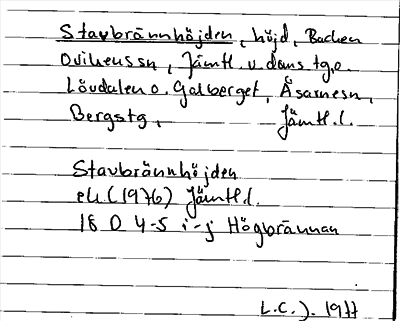 Stavbrännhöjden, höjd, Backen
Ovikens sn, Jämtl. v. doms tg. o.
Lövdalen o. Galberget, Åsarne sn,
Bergs tg, Jämtl. l.
Stavbrännhöjden
ek (1976) Jämtl l.
18 D 4-5 i-j Högbrännan
L.C. J. 1977